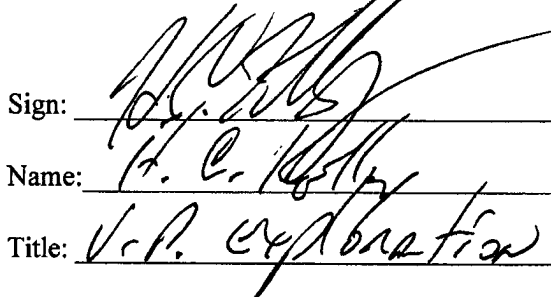 Sign:
Name: H. C. Kelly
Title: V.P. Exploration